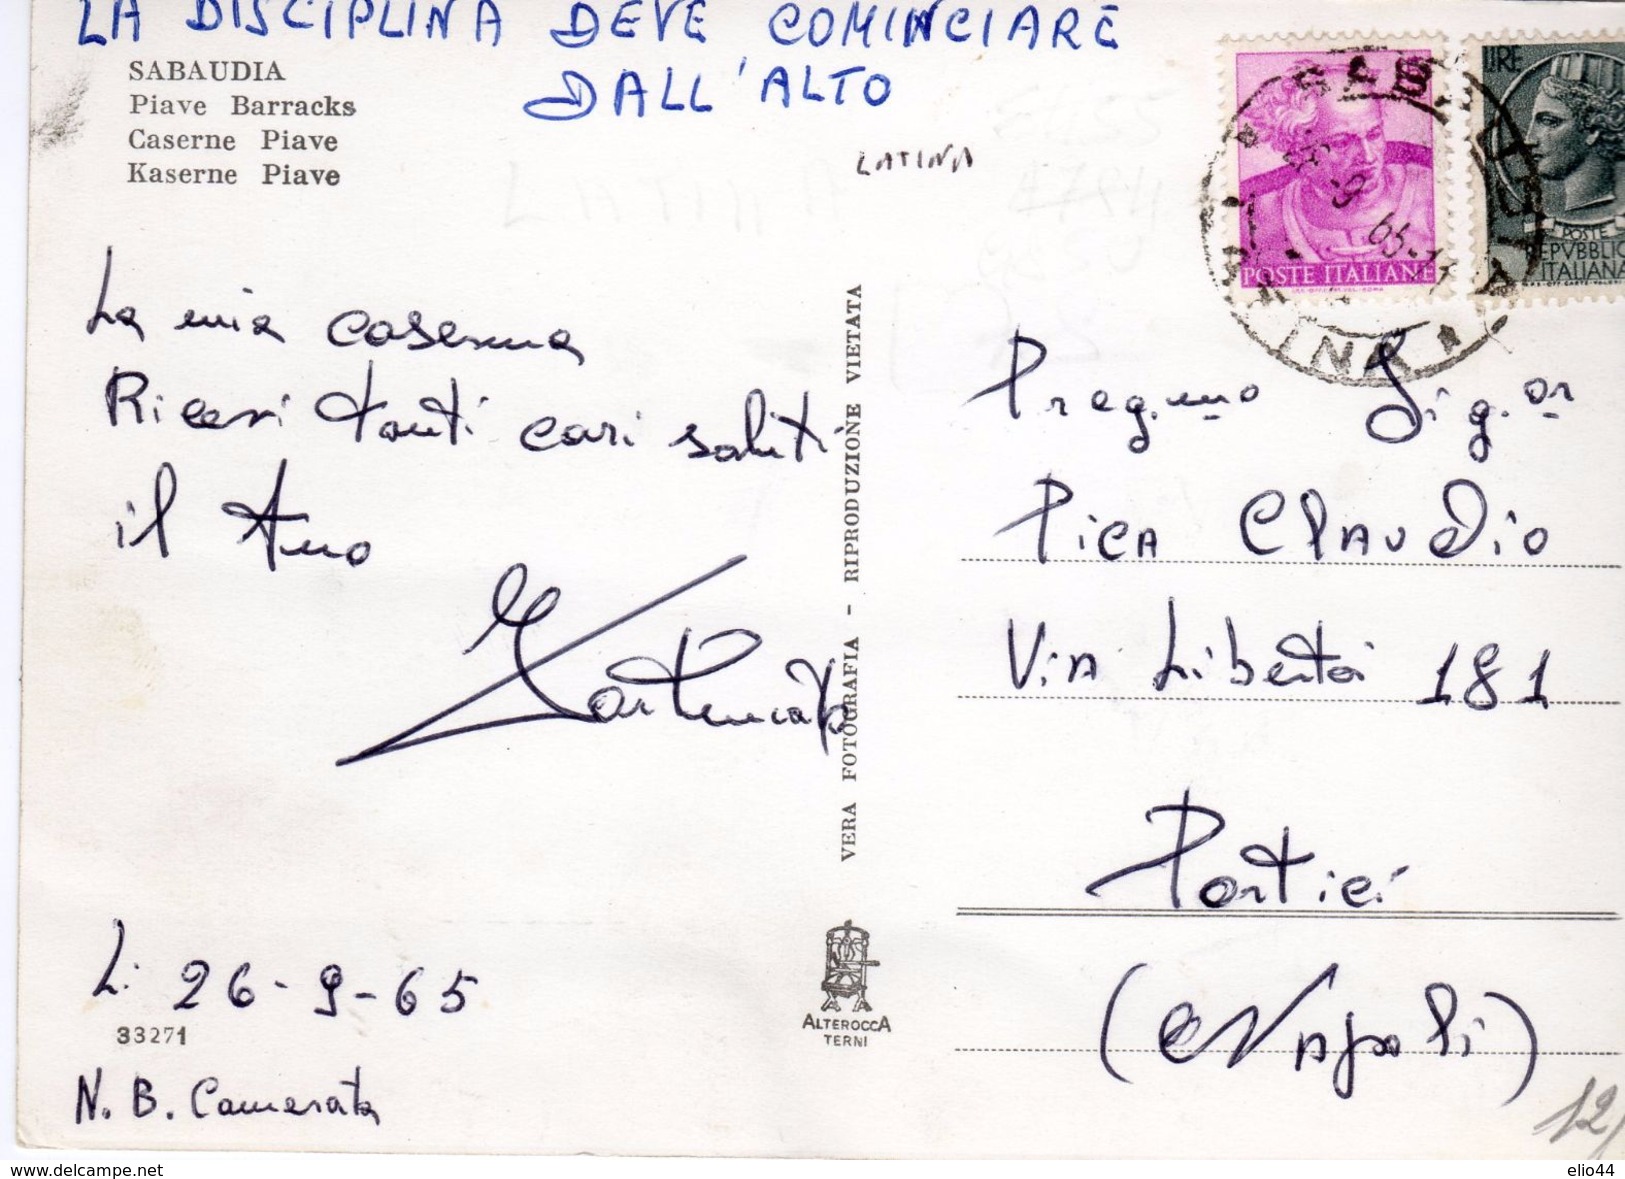 LA DISCIPLINA DEVE COMINCIARE
DALL'ALTO
SABAUDIA
Piave Barracks
Caserne Piave
Kaserne Piave
LATINA
POSTE ITALIANE
LIRE
POSTE
REPVBBLIC
ITALIANA
La mia caserma
Ricevi tanti cari saluti
il tuo
L: 26-9-65
33271
N.B. Camerata
VERA FOTOGRAFIA - RIPRODUZIONE VIETATA
ALTEROCCA
TERNI
Preg.mo Sig.or
Pica Claudio
Via Libertà 181
Portici
(Napoli)
12/
www.delcampe.net
elio44